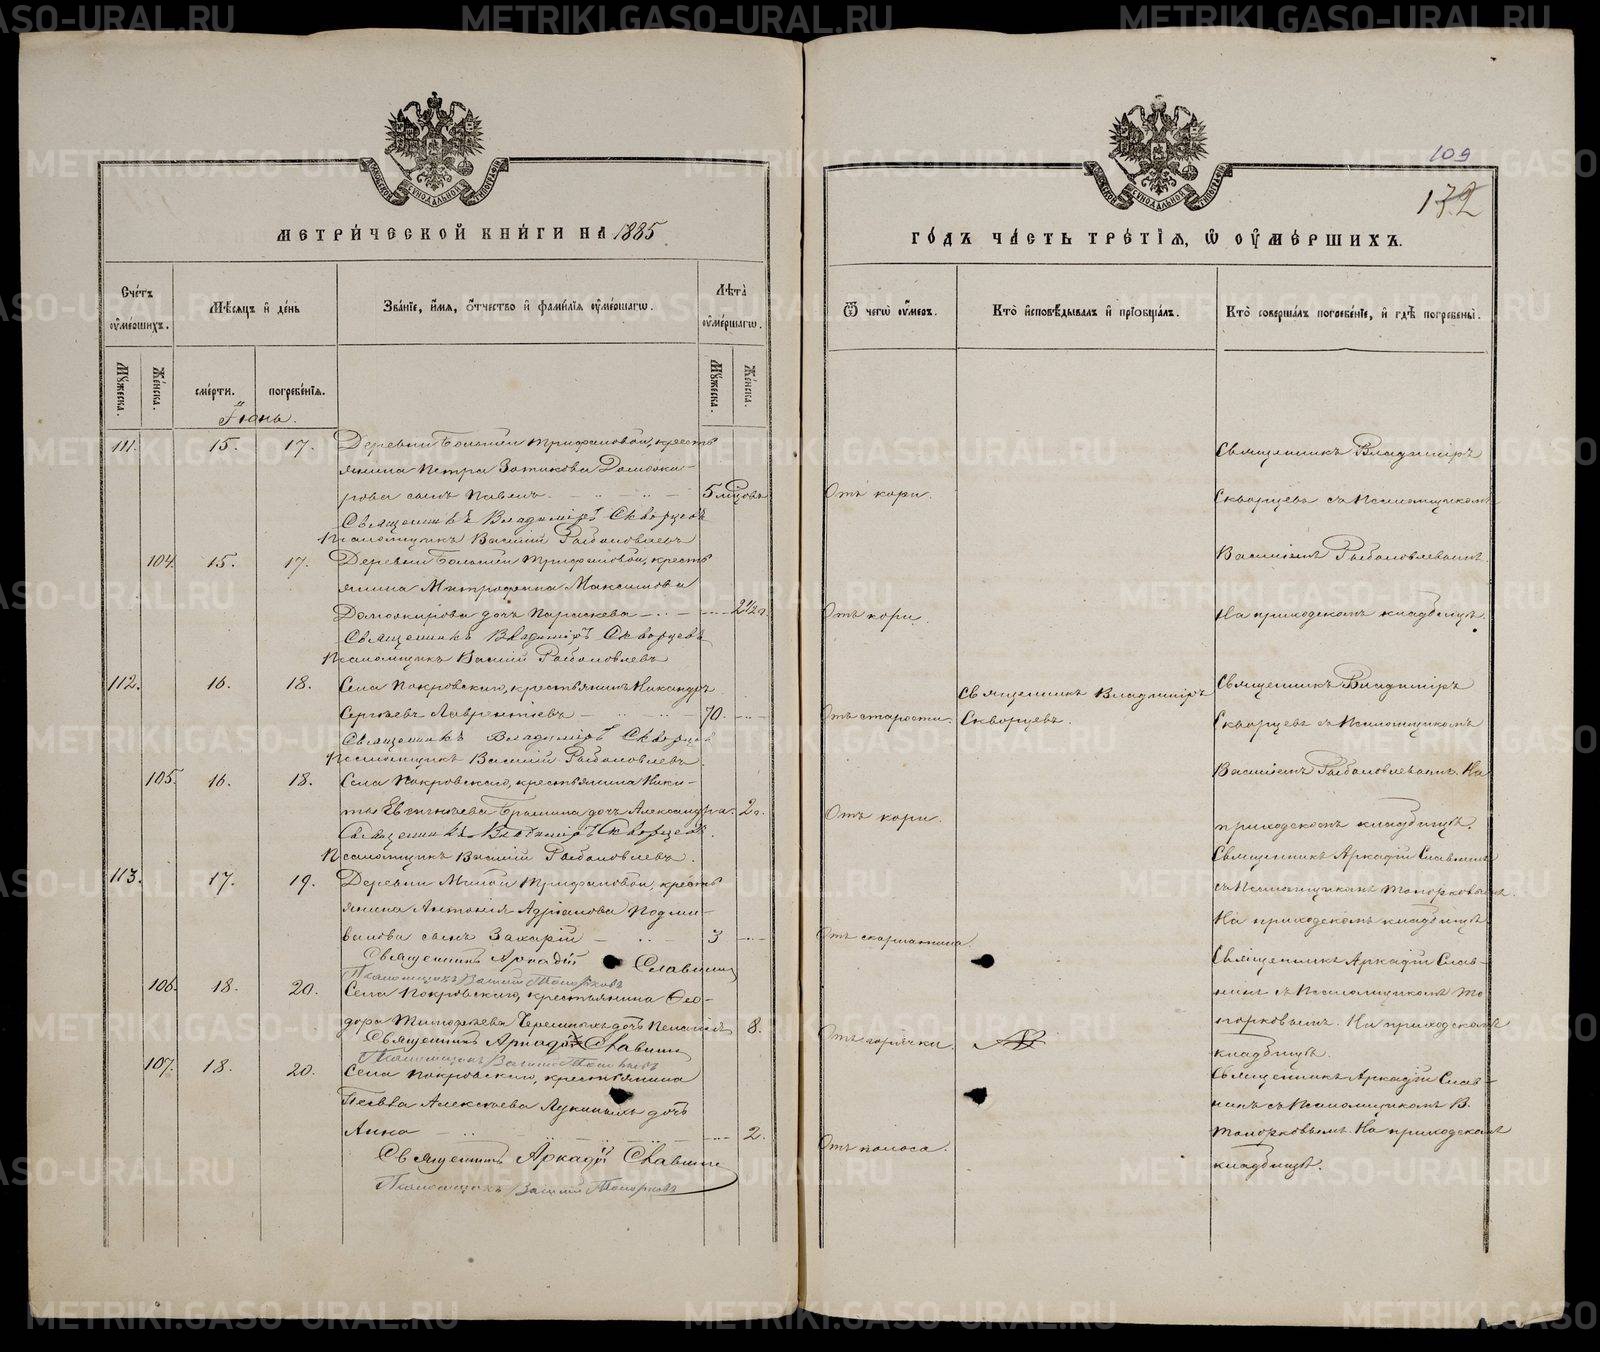 МЕТРИЧЕСКОЙ КНИГИ НА 1885
Счетъ оумершихъ.
Мѣсяцъ и день
Званіе, имя, отчество и фамилія оумершагѡ.
Лѣта оумершагѡ.
Мужеска.
Женска.
смерти.
погребенія.
Мужеска.
Женска.
Іюнь.
111. 15. 17. Деревни Большой Трифановой, кресть
янина Петра Зотикова Доможи-
рова сынъ Павелъ 5 мѣсѧцовъ
Священникъ Владиміръ Скворцевъ
Псаломщикъ Василій Рыболовлевъ
104. 15. 17. Деревни Большой Трифановой, кресть
янина Митрофана Максимова
Доможирова дочь Параскева 2 1/2 г.
Священникъ Владиміръ Скворцевъ
Псаломщикъ Василій Рыболовлевъ
112. 16. 18. Села Покровскаго, крестьянинъ Никандръ
Сергѣевъ Лаврентіевъ 70.
Священникъ Владиміръ Скворцев
Псаломщикъ Василій Рыболовлевъ
105. 16. 18. Села Покровскаго, крестьянина Ники-
ты Евгеніева дочь Александра. 2 г.
Священникъ Владиміръ Скворцевъ.
Псаломщикъ Василій Рыболовлевъ.
113. 17. 19. Деревни Малой Трифановой, кресть
янина Антонія Адріанова Подши-
валова сынъ Захарій 3
Священникъ Аркадій Славнинъ
Псаломщикъ Василій Топорковъ
106. 18. 20. Села Покровскаго, крестьянина Ѳео-
дора Тимоѳеева Черемныхъ дочь Пелагія 8.
Священникъ Аркадій Славнинъ
Псаломщикъ Василій Топорковъ
107. 18. 20. Села Покровскаго, крестьянина
Алексѣева Лукиныхъ дочь
Анна 2.
Священникъ Аркадій Славнинъ
Псаломщикъ Василій Топорковъ
109
172
ГОДЪ ЧАСТЬ ТРЕТІЯ, Ѡ ОУМЕРШИХЪ.
Ѿ чегѡ оумеръ.
Кто исповѣдывалъ и пріобщалъ.
Кто совершалъ погребеніе, и гдѣ погребены.
Отъ кори.
Священникъ Владиміръ
Скворцевъ съ Псаломщикомъ
Василіемъ Рыболовлевымъ.
Отъ кори.
На приходскомъ кладбищѣ.
Отъ старости.
Священникъ Владиміръ
Скворцевъ.
Священникъ Владиміръ
Скворцевъ съ Псаломщикомъ
Василіемъ Рыболовлевымъ. На
приходскомъ кладбищѣ.
Отъ кори.
Священникъ Аркадій Славнинъ
съ Псаломщикомъ Топорковымъ.
На приходскомъ кладбищѣ
Отъ скарлатина.
Священникъ Аркадій Слав-
нинъ съ Псаломщикомъ То
порковымъ. На приходскомъ
кладбищѣ.
Отъ горячки.
Священникъ Аркадій Слав-
нинъ съ Псаломщикомъ В.
Топорковымъ. На приходскомъ
кладбищѣ.
Отъ поноса.